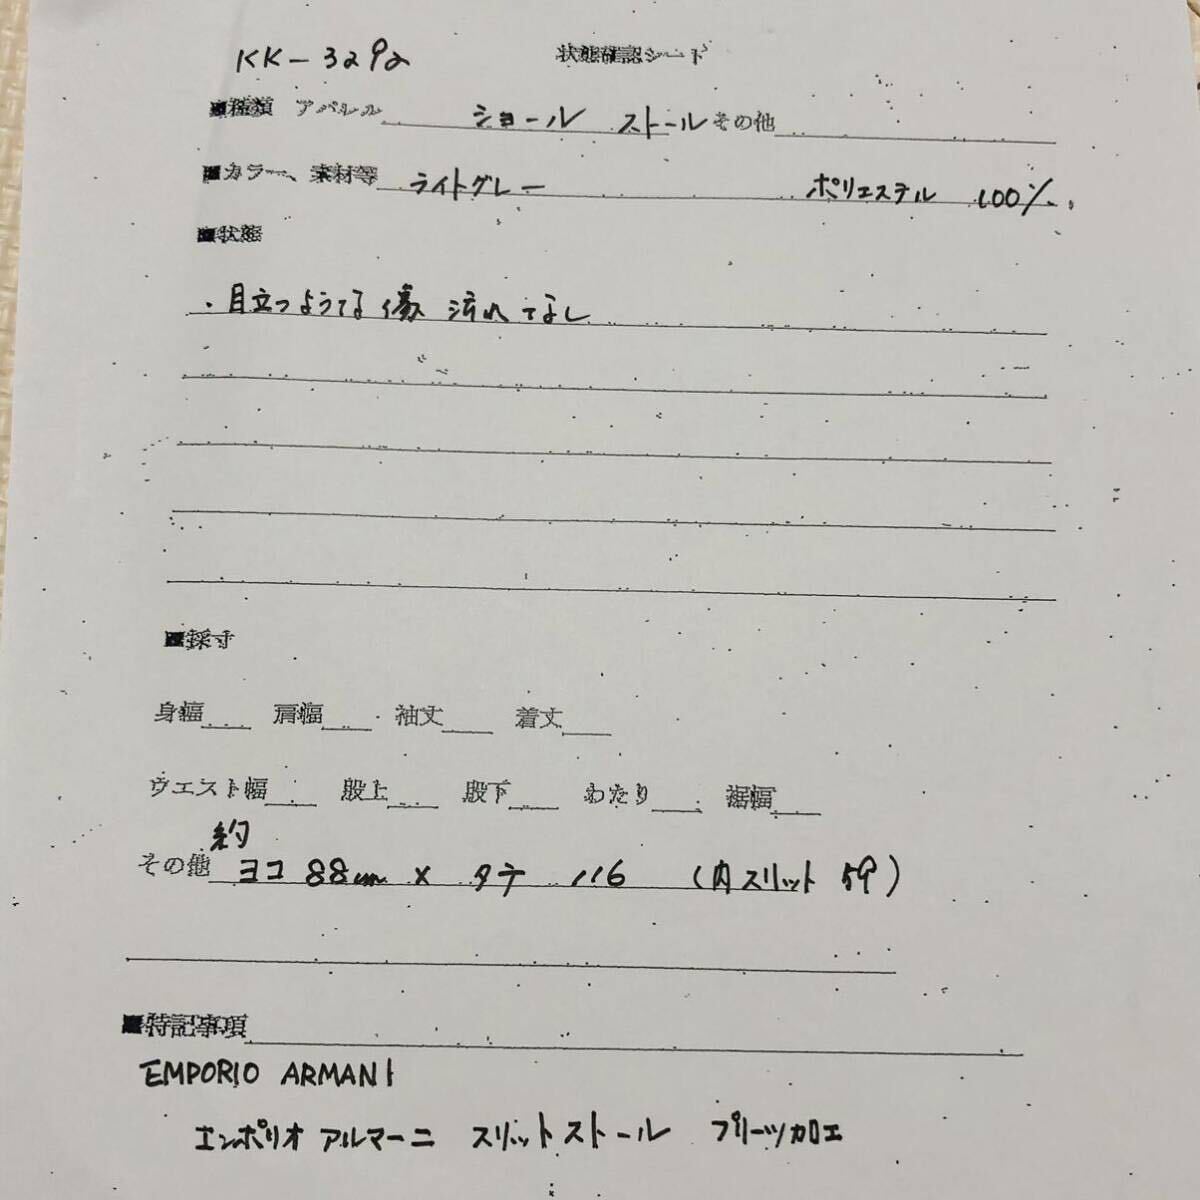 KK-3292 状態確認シート
■種類 アパレル ショール ストール その他
■カラー、素材等 ライトグレー ポリエステル 100%.
■状態
・目立つような傷 汚れ なし
■採寸
身幅 肩幅 袖丈 着丈
ウエスト幅 股上 股下 わたり 裾幅
約
その他 ヨコ 88cm × タテ 116 (内スリット 59)
■特記事項
EMPORIO ARMANI
エンポリオ アルマーニ スリットストール プリーツ加工